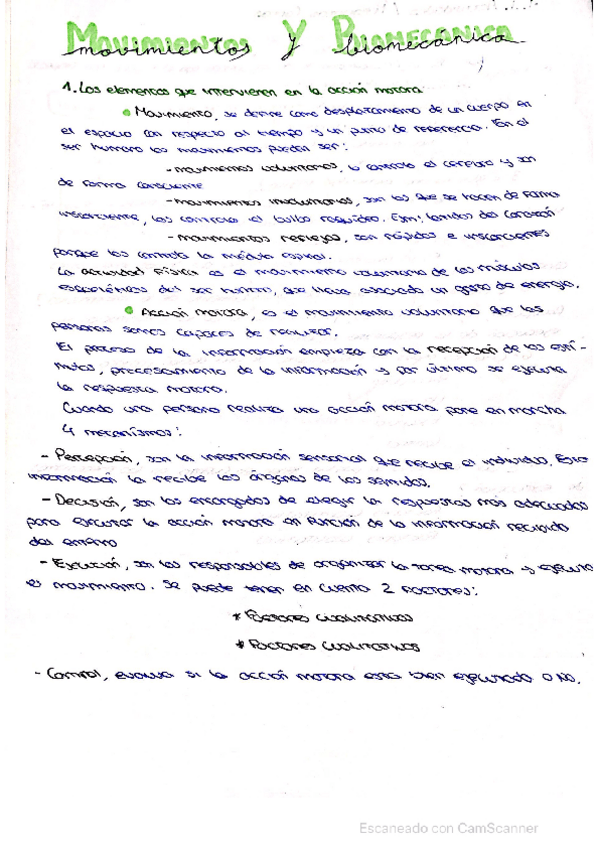 Movimientos Y Biomecánica
movimientos biomecánica
1. Los elementos que intervienen en la acción motora
Movimiento, se define como desplazamiento de un cuerpo en
el espacio con respecto al tiempo y un punto de referencia. En el
ser humano los movimientos pueden ser:
- movimientos voluntarios, lo controla el cerebro y son
de forma consciente
- movimientos involuntarios, son los que se hacen de forma
inconsciente, los controla el bulbo raquídeo. Ejm: latidos del corazón
- movimientos reflejos, son rápidos e inconscientes
porque los controla la médula espinal.
La actividad física es el movimiento voluntario de los músculos
esqueléticos del ser humano, que lleva asociado un gasto de energía.
Acción motora, es el movimiento voluntario que las
personas somos capaces de realizar.
El proceso de la información empieza con la recepción de los estí-
mulos, procesamiento de la información y por último se ejecuta
la respuesta motora.
Cuando una persona realiza una acción motora pone en marcha
4 mecanismos:
- Percepción, son la información sensorial que recibe el individuo. Esta
información la recibe los órganos de los sentidos.
- Decisión, son los encargados de elegir la respuestas más adecuadas
para ejecutar la acción motora en función de la información recibida
del entorno
- Ejecución, son los responsables de organizar la tarea motora y ejecuta
el movimiento. Se puede tener en cuenta 2 factores:
* Factores cualitativos
* Factores cualitativos
- Control, evalua si la acción motora esta bien ejecutada o no.
Escaneado con CamScanner